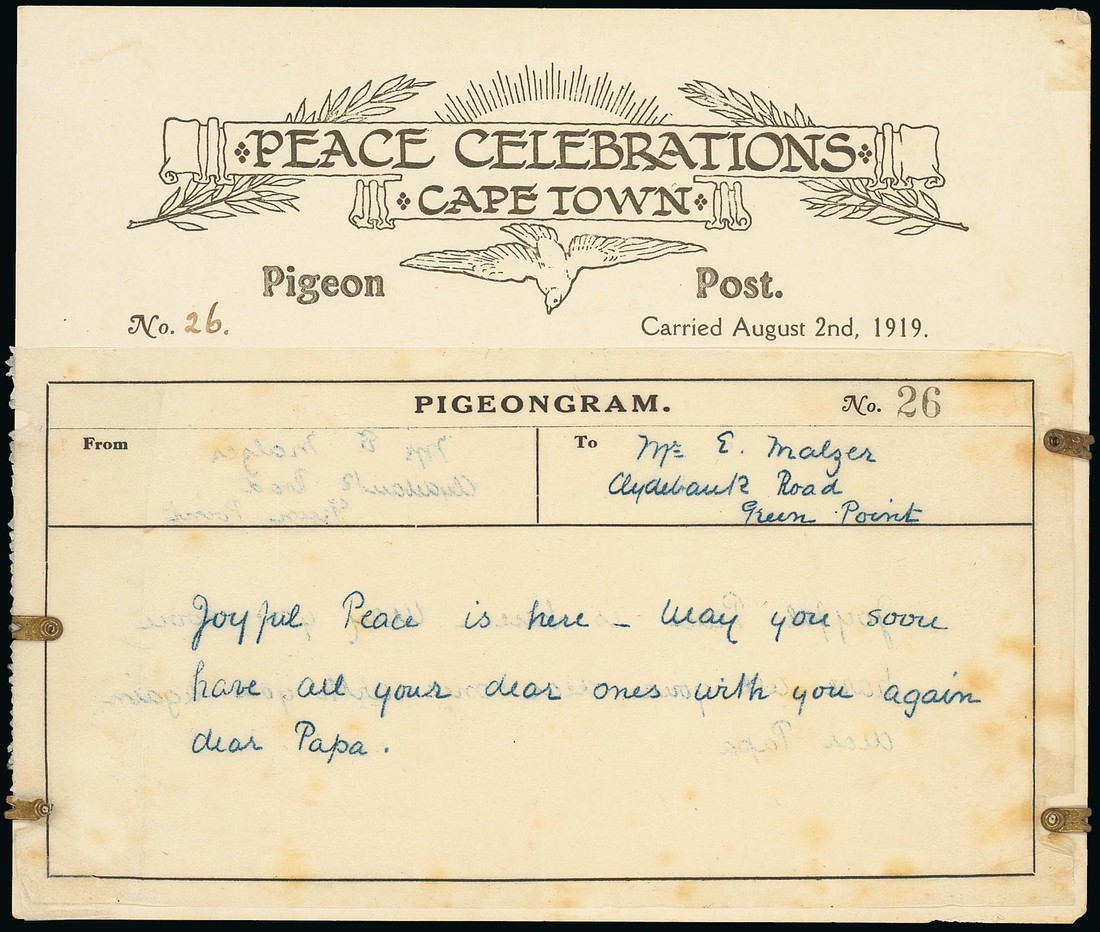 PEACE CELEBRATIONS
CAPE TOWN
Pigeon Post.
No. 26.
Carried August 2nd, 1919.
PIGEONGRAM.
No. 26
From
To Mr E. Malzer
Clydebank Road
Green Point
Joyful Peace is here – May you soon
have all your dear ones with you again
dear Papa.